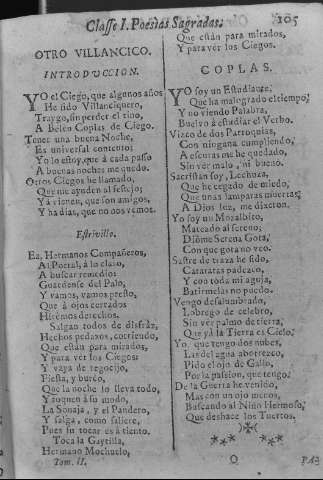 Classe I. Poesías Sagradas. 105
OTRO VILLANCICO.
INTRODUCCION.
YO el Ciego, que algunos años
He sido Villanciquero,
Traygo, sin perder el tino,
A Belén Coplas de Ciego.
Tener una buena Noche,
Es universal contento;
Yo lo estoy, que à cada passo
A buenas noches me quedo.
Otros Ciegos he llamado,
Que me ayuden al festejo;
Yà vienen, que son amigos,
Y ha dias, que no nos vemos.
Estrivillo.
Ea, Hermanos Compañeros,
Al Portal, à lo claro,
A buscar remedio:
Guardense del Palo,
Y vamos, vamos presto,
Que à ojos cerrados
Hirémos derechos.
Salgan todos de disfràz,
Hechos pedazos, corriendo,
Que estàn para mirados,
Y para ver los Ciegos:
Y vaya de regocijo,
Fiesta, y bureo,
Que la noche lo lleva todo,
Y toquen à su modo,
La Sonaja, y el Pandero,
Y salga, como saliere,
Pues su tocar es à tiento.
Toca la Gaytilla,
Hermano Mochuelo,
Tom. II.
Que estàn para mirados,
Y para ver los Ciegos.
COPLAS.
YO soy un Estudiante,
Que ha malogrado el tiempo,
Y no viendo Palabra,
Buelvo à estudiar el Verbo.
Vizco de dos Parroquias,
Con ninguna cumpliendo,
A escuras me he quedado,
Sin ver malo, ni bueno.
Sacristan soy, Lechuza,
Que he cegado de miedo,
Que unas lamparas muertas,
A Dios luz, me dixeron.
Yo soy un Mozalbito,
Mateado al sereno;
Diòme Serena Gota,
Con que gota no veo.
Sastre de traza he sido,
Cataratas padezco,
Y con toda mi aguja,
Batirmelas no puedo.
Vengo desalumbrado,
Lobrego de celebro,
Sin ver palmo de tierra,
Que yà la Tierra es Cielo.
Yo, que tengo dos nubes,
Las del agua aborrezco,
Pido el ojo de Gallo,
Por la passion, que tengo.
De la Guerra he venido,
Mas con un ojo menos,
Buscando al Niño Hermoso,
Que deshace los Tuertos.
O